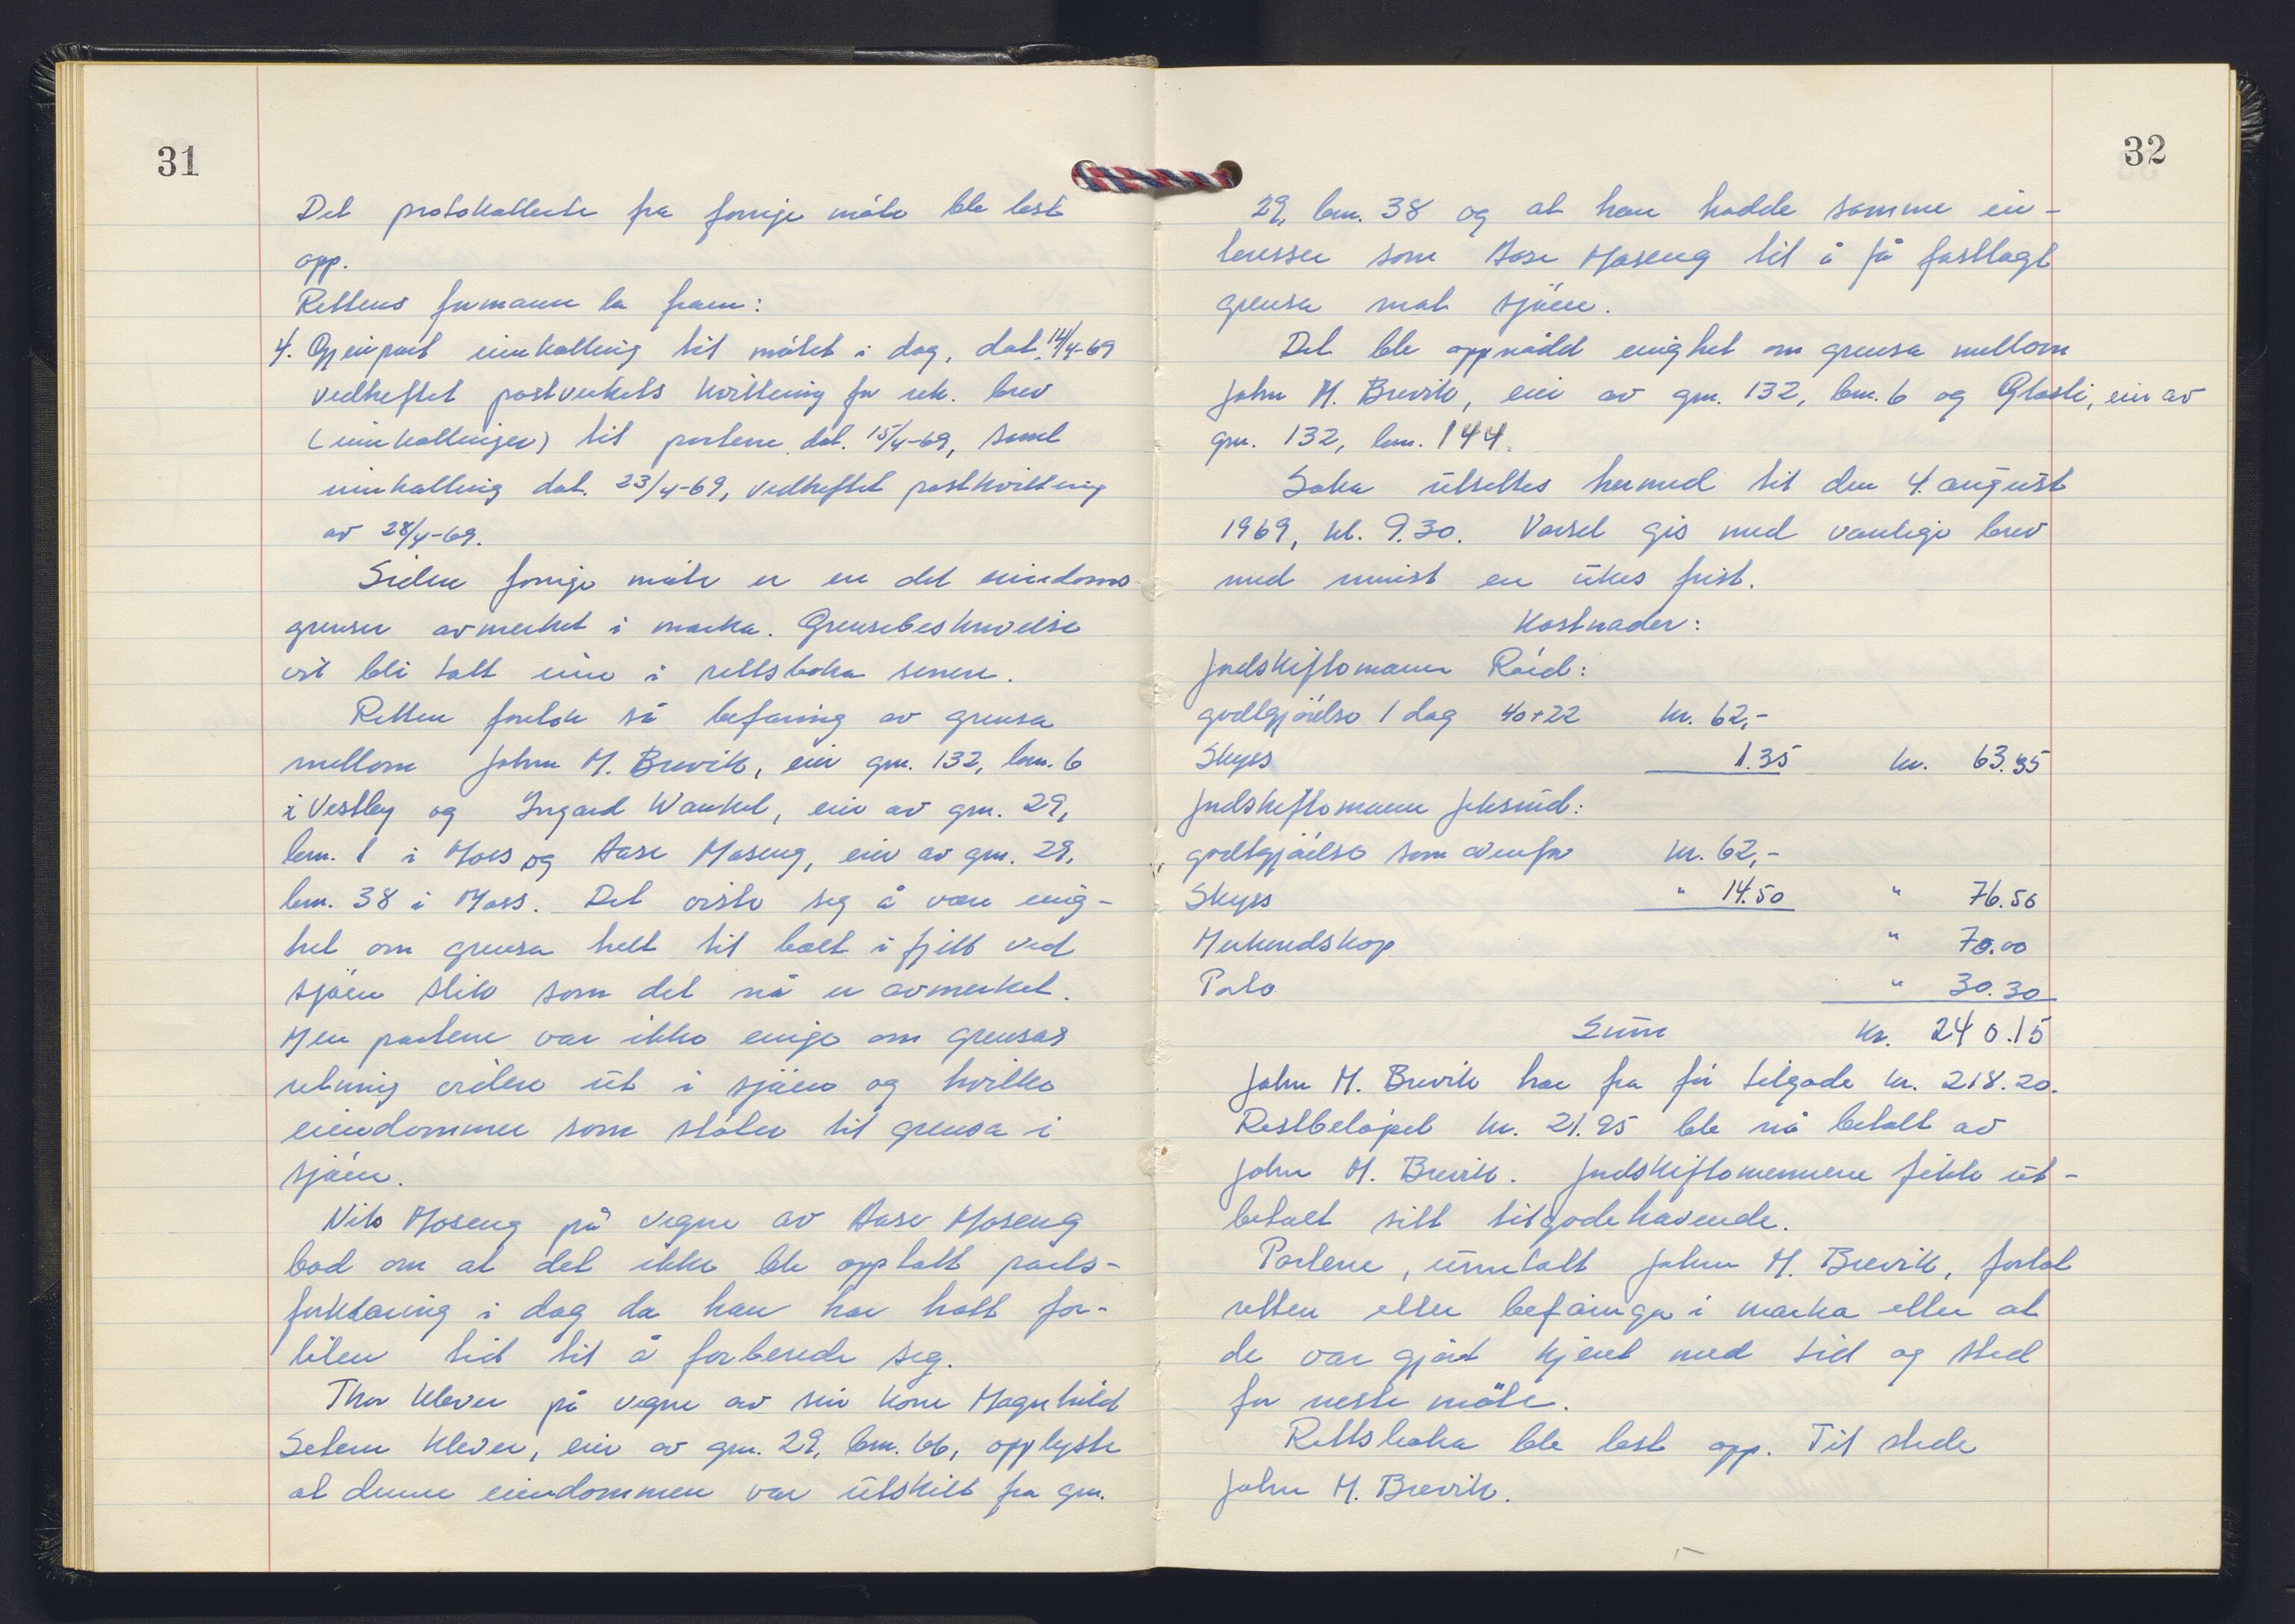 31
Det protokollerte fra forrige møte ble lest
opp.
Rettens formann la fram:
4. Gjenpart innkalling til møtet i dag, dat. 14/4-69
vedheftet postverkets kvittering for rek. brev
(innkallinger) til partene dat. 15/4-69, samt
innkalling dat. 23/4-69, vedheftet postkvittering
av 28/4-69.
Siden forrige møte er en del eiendoms-
grenser avmerket i marka. Grensebeskrivelse
vil bli tatt inn i rettsboka senere.
Retten foretok så befaring av grensa
mellom John M. Brevik, eier gnr. 132, bnr. 6
i Vestby og Ingard Wankel, eier av gnr. 29,
bnr. 1 i Moss og Aase Moseng, eier av gnr. 29,
bnr. 38 i Moss. Det viste seg å være enig-
het om grensa helt til bolt i fjell ved
sjøen slik som det nå er avmerket.
Men partene var ikke enige om grensas
retning videre ut i sjøen og hvilke
eiendommer som støter til grensa i
sjøen.
Nils Moseng på vegne av Aase Moseng
bad om at det ikke ble opptatt parts-
forklaring i dag da han har hatt for-
liten tid til å forberede seg.
Thor Klever på vegne av sin kone Magnhild
Setern Klever, eier av gnr. 29, bnr. 66, opplyste
at denne eiendommen var utskilt fra gnr.
32
29, bnr. 38 og at han hadde samme in-
teresser som Aase Moseng til å få fastlagt
grensa mot sjøen.
Det ble oppnådd enighet om grensa mellom
John M. Brevik, eier av gnr. 132, bnr. 6 og Glasli, eier av
gnr. 132, bnr. 144.
Saka utsettes hermed til den 4. august
1969, kl. 9.30. Varsel gis med vanlige brev
med minst en ukes frist.
Kostnader:
Jordskiftemann Røed:
godtgjørelse 1 dag 40+22 kr. 62,-
Skyss 1.35 kr. 63.35
Jordskiftemann Jeksrud:
godtgjørelse som ovenfor kr. 62,-
Skyss " 14.50 " 76.50
Merkeredskap " 70.00
Porto " 30.30
Sum kr. 240.15
John M. Brevik har fra før tilgode kr. 218.20.
Restbeløpet kr. 21.95 ble nå betalt av
John M. Brevik. Jordskiftemennene fikk ut-
betalt sitt tilgodehavende.
Partene, unntatt John M. Brevik, forlot
retten etter befaringa i marka etter at
de var gjort kjent med tid og sted
for neste møte.
Rettsboka ble lest opp. Til stede
John M. Brevik.